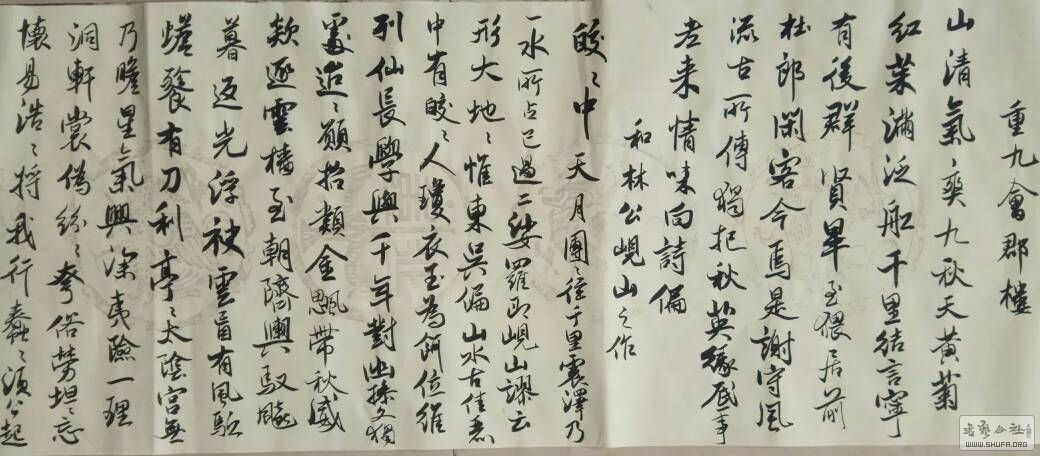 重九會郡樓
山清氣爽九秋天黃菊
紅茱滿泛船千里結言寧
有後群賢畢至猥居前
杜郎閑客今焉是謝守風
流古所傳獨把秋英緣底事
老來情味向詩偏
和林公峴山之作
皎々中天月團々徑千里震澤乃
一水所占已過二娑羅即峴山謬云
形大地々惟東吳偏山水古佳麗
中有皎々人瓊衣玉為餌位維
列仙長學與千年對幽操久獨
處迢々願招類金飈帶秋威
欻逐雲檣至朝隮輿馭飈
暮返光浮袂雲盲有風驅
蟾餮有刀利亭々太陰宮無
乃瞻星氣興深夷險一理
洞軒裳偽紛々夸俗勞坦々忘
懷易浩々將我行蠢々須公起
WWW.SHUFA.ORG